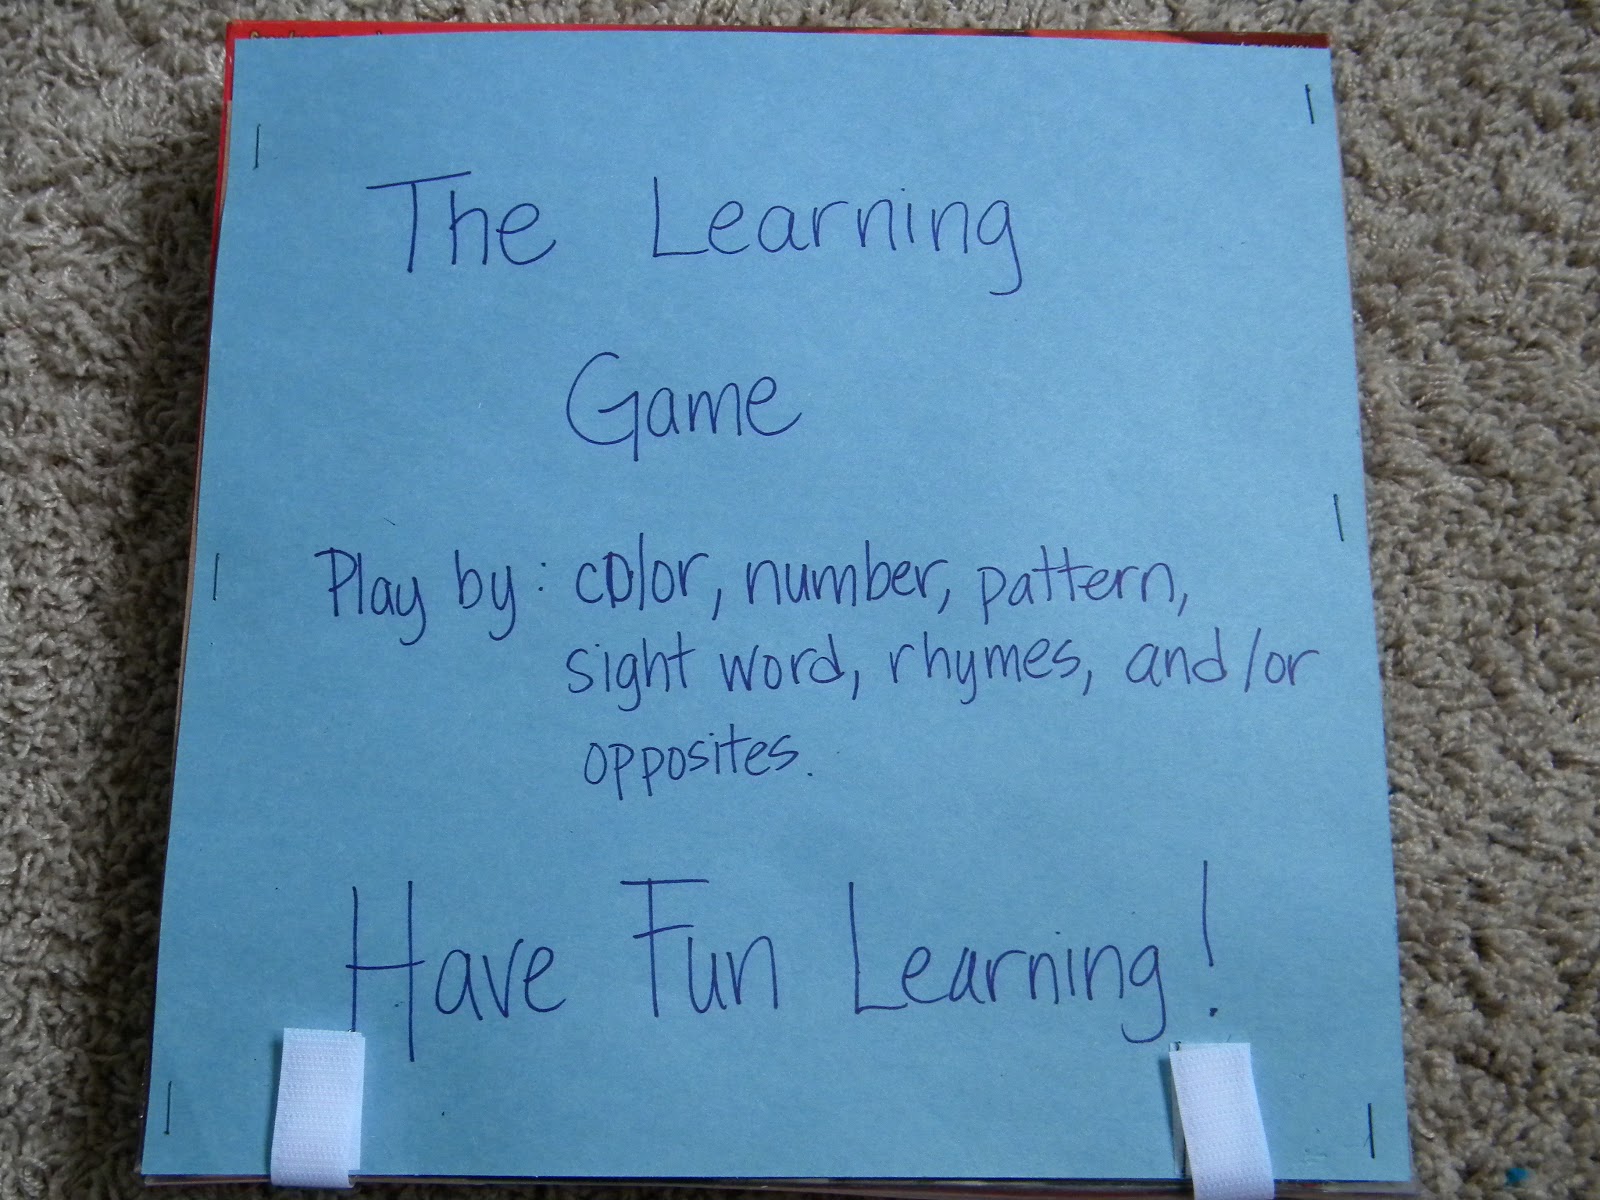 The Learning
Game
Play by: color, number, pattern,
sight word, rhymes, and/or
opposites.
Have Fun Learning!